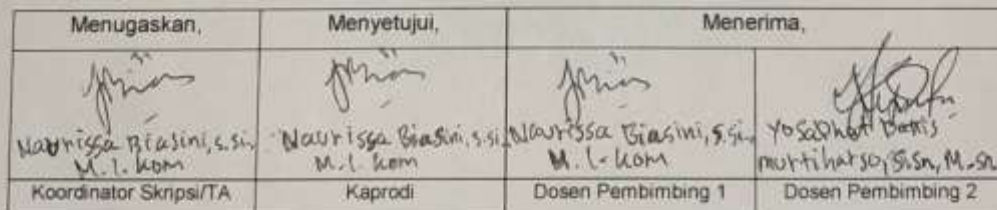 Menugaskan,
Menyetujui,
Menerima,
Naurissa Biasini, S.Si,
M.I.Kom
Naurissa Biasini, S.Si,
M.I.Kom
Naurissa Biasini, S.Si,
M.I.Kom
Yosaphat Danis
Murtiharso, S.Sn, M.Sn
Koordinator Skripsi/TA
Kaprodi
Dosen Pembimbing 1
Dosen Pembimbing 2